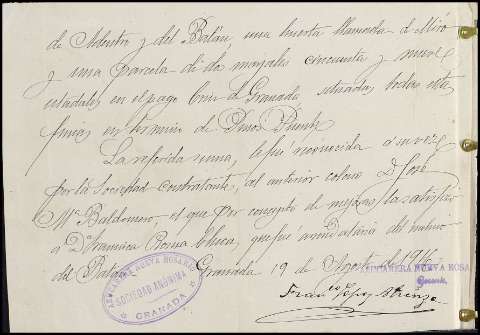 de Maestro y del Batán, una huerta llamada d
y una parcela de dos marjales cincuenta y nueve
estadales en el pago Cruz de Granada, situadas todas estas
fincas en termino de Pinos Puente
La referida suma, le fué reconocida a su vez
por la Sociedad Contratante, al anterior colono D. José
Mª Baldomero, el que por concepto de mejoras, la satisfizo
a Dª Francisca Roma Checa, que fué arrendataria del
del Batán. Granada 19 de Agosto de 1916
NUEVA ROSARIO
SOCIEDAD ANONIMA
GRANADA
NUEVA ROSA
Gerente,
Franco López Atienza